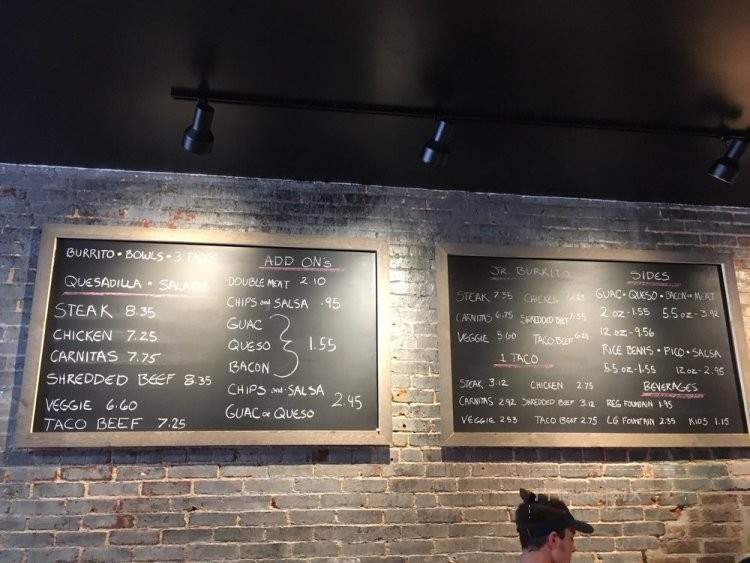 BURRITO • BOWLS • 3 TACOS
QUESADILLA • SALADS
STEAK 8.35
CHICKEN 7.25
CARNITAS 7.75
SHREDDED BEEF 8.35
VEGGIE 6.60
TACO BEEF 7.25
ADD ON'S
DOUBLE MEAT 2.10
CHIPS and SALSA .95
GUAC
QUESO 1.55
BACON
CHIPS and SALSA
GUAC or QUESO 2.45
JR. BURRITO
STEAK 7.35 CHICKEN
CARNITAS 6.75 SHREDDED BEEF 7.35
VEGGIE 5.60 TACO BEEF
1 TACO
STEAK 3.12 CHICKEN 2.75
CARNITAS 2.92 SHREDDED BEEF 3.12
VEGGIE 2.53 TACO BEEF 2.75
SIDES
GUAC • QUESO • BACON or MEAT
2 oz - 1.55 5.5 oz - 3.92
12 oz - 9.56
RICE BEANS • PICO • SALSA
5.5 oz - 1.55 12 oz - 2.95
BEVERAGES
REG FOUNTAIN 1.95
LG FOUNTAIN 2.35 KIDS 1.15